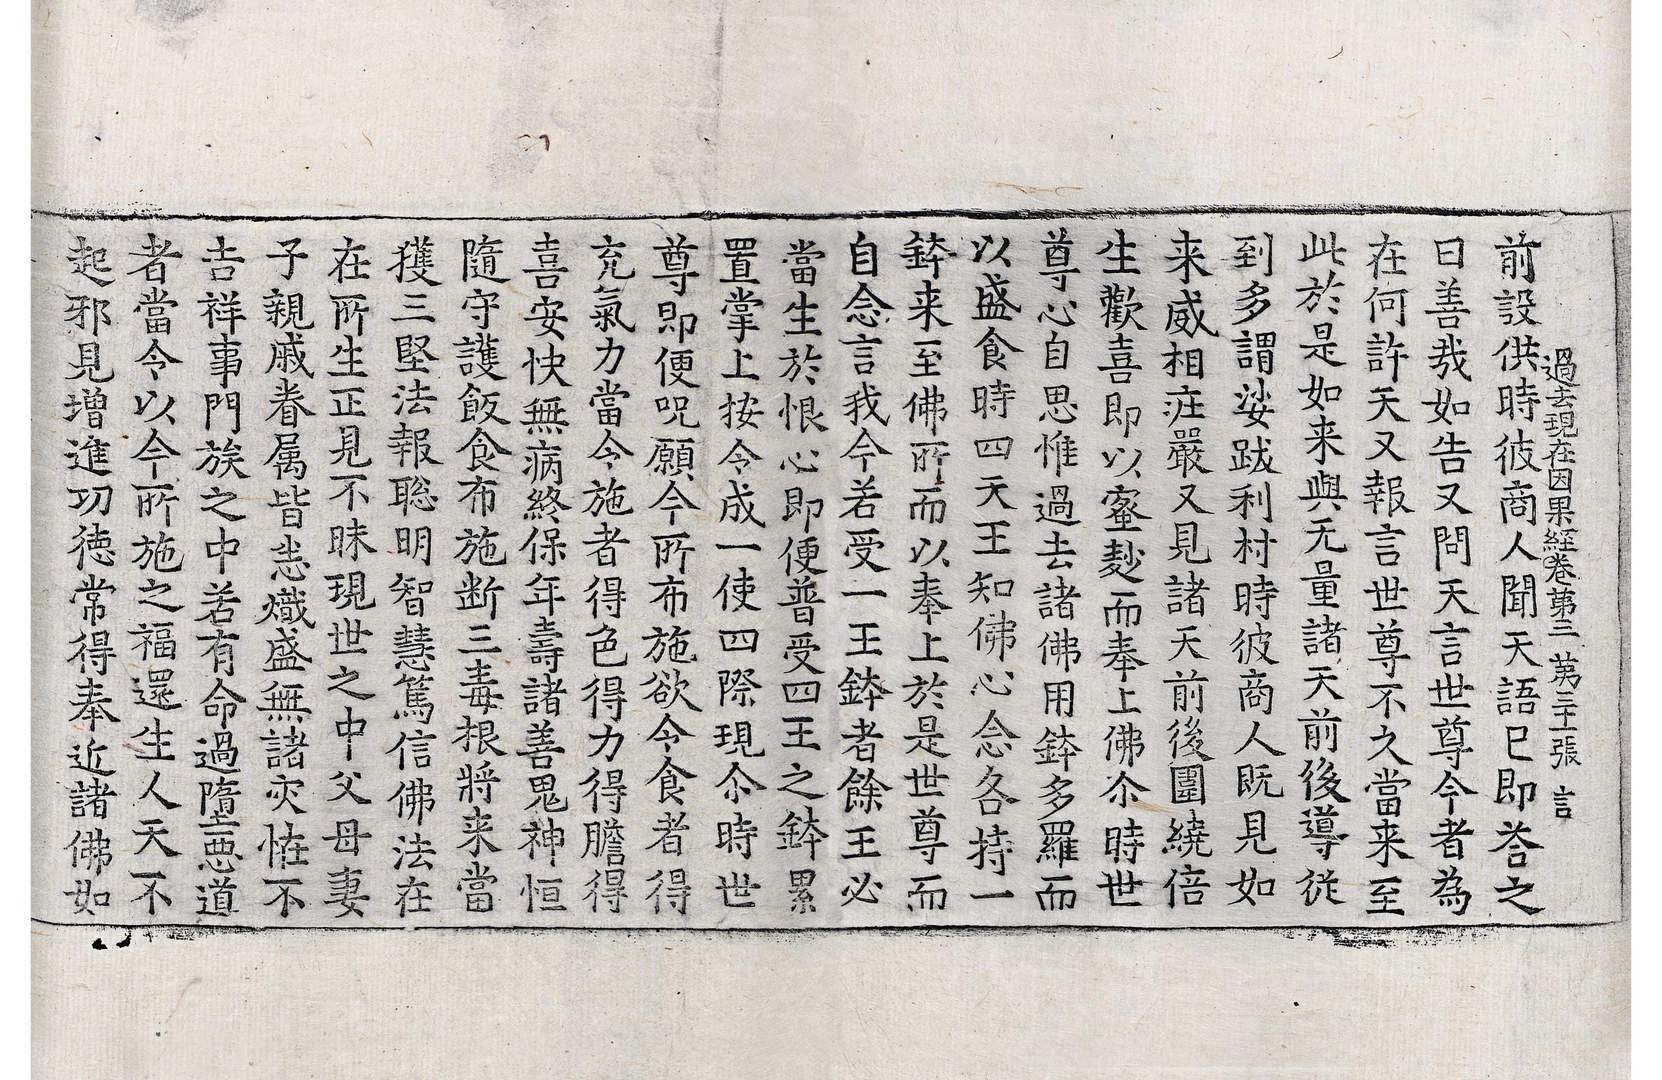 過去現在因果経卷第三 苐三十一張 言
前設供時彼商人聞天語已即荅之
曰善哉如告又問天言世尊今者為
在何許天又報言世尊不久當来至
此於是如来與无量諸天前後導従
到多謂娑跋利村時彼商人既見如
来威相㽵嚴又見諸天前後圍繞倍
生歡喜即以蜜麨而奉上佛尒時世
尊心自思惟過去諸佛用鉢多羅而
以盛食時四天王知佛心念各持一
鉢来至佛所而以奉上於是世尊而
自念言我今若受一王鉢者餘王必
當生於恨心即便普受四王之鉢累
置掌上按令成一使四際現尒時世
尊即便呪願今所布施欲令食者得
充氣力當令施者得色得力得膽得
喜安快無病終保年壽諸善鬼神恒
隨守護飯食布施断三毒根將来當
獲三堅法報聡明智慧篤信佛法在
在所生正見不昧現世之中父母妻
子親戚眷属皆悉熾盛無諸灾恠不
吉祥事門族之中若有命過墮惡道
者當令以今所施之福還生人天不
起邪見增進功徳常得奉近諸佛如